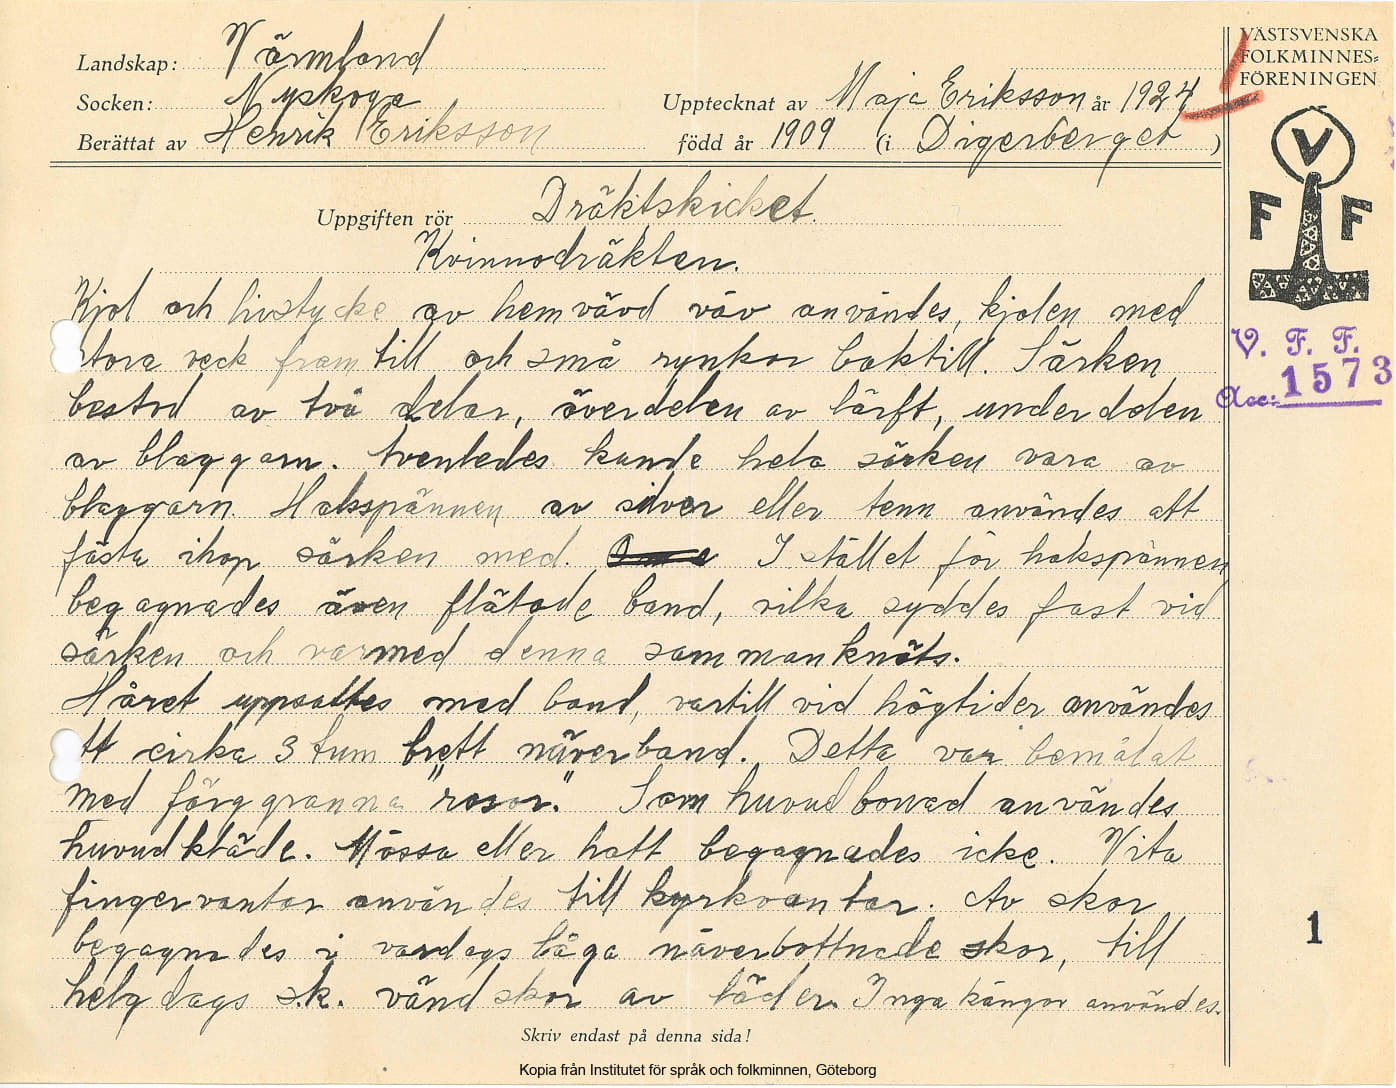 Landskap: Värmland
Socken: Nyskoga
Berättat av Henrik Eriksson
Upptecknat av Maja Eriksson år 1924
född år 1909 (i Digerberget)
VÄSTSVENSKA
FOLKMINNES=
FÖRENINGEN
V
F F
V. F. F.
Acc: 1573
Uppgiften rör Dräktskicket.
Kvinnodräkten.
Kjol och livstycke av hemvävd väv användes, kjolen med
stora veck framtill och små rynkor baktill. Särken
bestod av två delar, överdelen av lärft, underdelen
av blaggarn. Äventedes kunde hela särken vara av
blaggarn. Halsspännen av silver eller tenn användes att
fästa ihop särken med. I stället för halsspännen
begagnades även flätade band, vilka syddes fast vid
särken och varmed denna sammanknöts.
Håret uppsattes med band, vartill vid högtider användes
ett cirka 3 tum brett näverband. Detta var bemålat
med färggranna "rosor." Som huvudbonad användes
huvudkläde. Mössa eller hatt begagnades icke. Vita
fingervantar användes till kyrkvantar. Av skor
begagnades i vardags låga näverbottnade skor, till
helgdags s.k. vändskor av läder. Inga kängor användes.
1
Skriv endast på denna sida!
Kopia från Institutet för språk och folkminnen, Göteborg